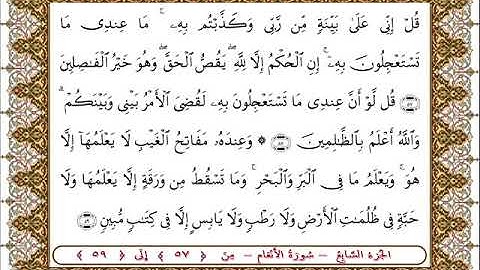 قُلْ إِنِّى عَلَىٰ بَيِّنَةٍ مِّن رَّبِّى وَكَذَّبْتُم بِهِۦ ۚ مَا عِندِى مَا
تَسْتَعْجِلُونَ بِهِۦٓ ۚ إِنِ ٱلْحُكْمُ إِلَّا لِلَّهِ ۖ يَقُصُّ ٱلْحَقَّ ۖ وَهُوَ خَيْرُ ٱلْفَـٰصِلِينَ
٥٧ قُل لَّوْ أَنَّ عِندِى مَا تَسْتَعْجِلُونَ بِهِۦ لَقُضِىَ ٱلْأَمْرُ بَيْنِى وَبَيْنَكُمْ ۗ
وَٱللَّهُ أَعْلَمُ بِٱلظَّـٰلِمِينَ ٥٨ ۞ وَعِندَهُۥ مَفَاتِحُ ٱلْغَيْبِ لَا يَعْلَمُهَآ إِلَّا
هُوَ ۚ وَيَعْلَمُ مَا فِى ٱلْبَرِّ وَٱلْبَحْرِ ۚ وَمَا تَسْقُطُ مِن وَرَقَةٍ إِلَّا يَعْلَمُهَا وَلَا
حَبَّةٍ فِى ظُلُمَـٰتِ ٱلْأَرْضِ وَلَا رَطْبٍ وَلَا يَابِسٍ إِلَّا فِى كِتَـٰبٍ مُّبِينٍ ٥٩
الجزء السابع - سورة الأنعام - من ﴿ ٥٧ ﴾ إلى ﴿ ٥٩ ﴾